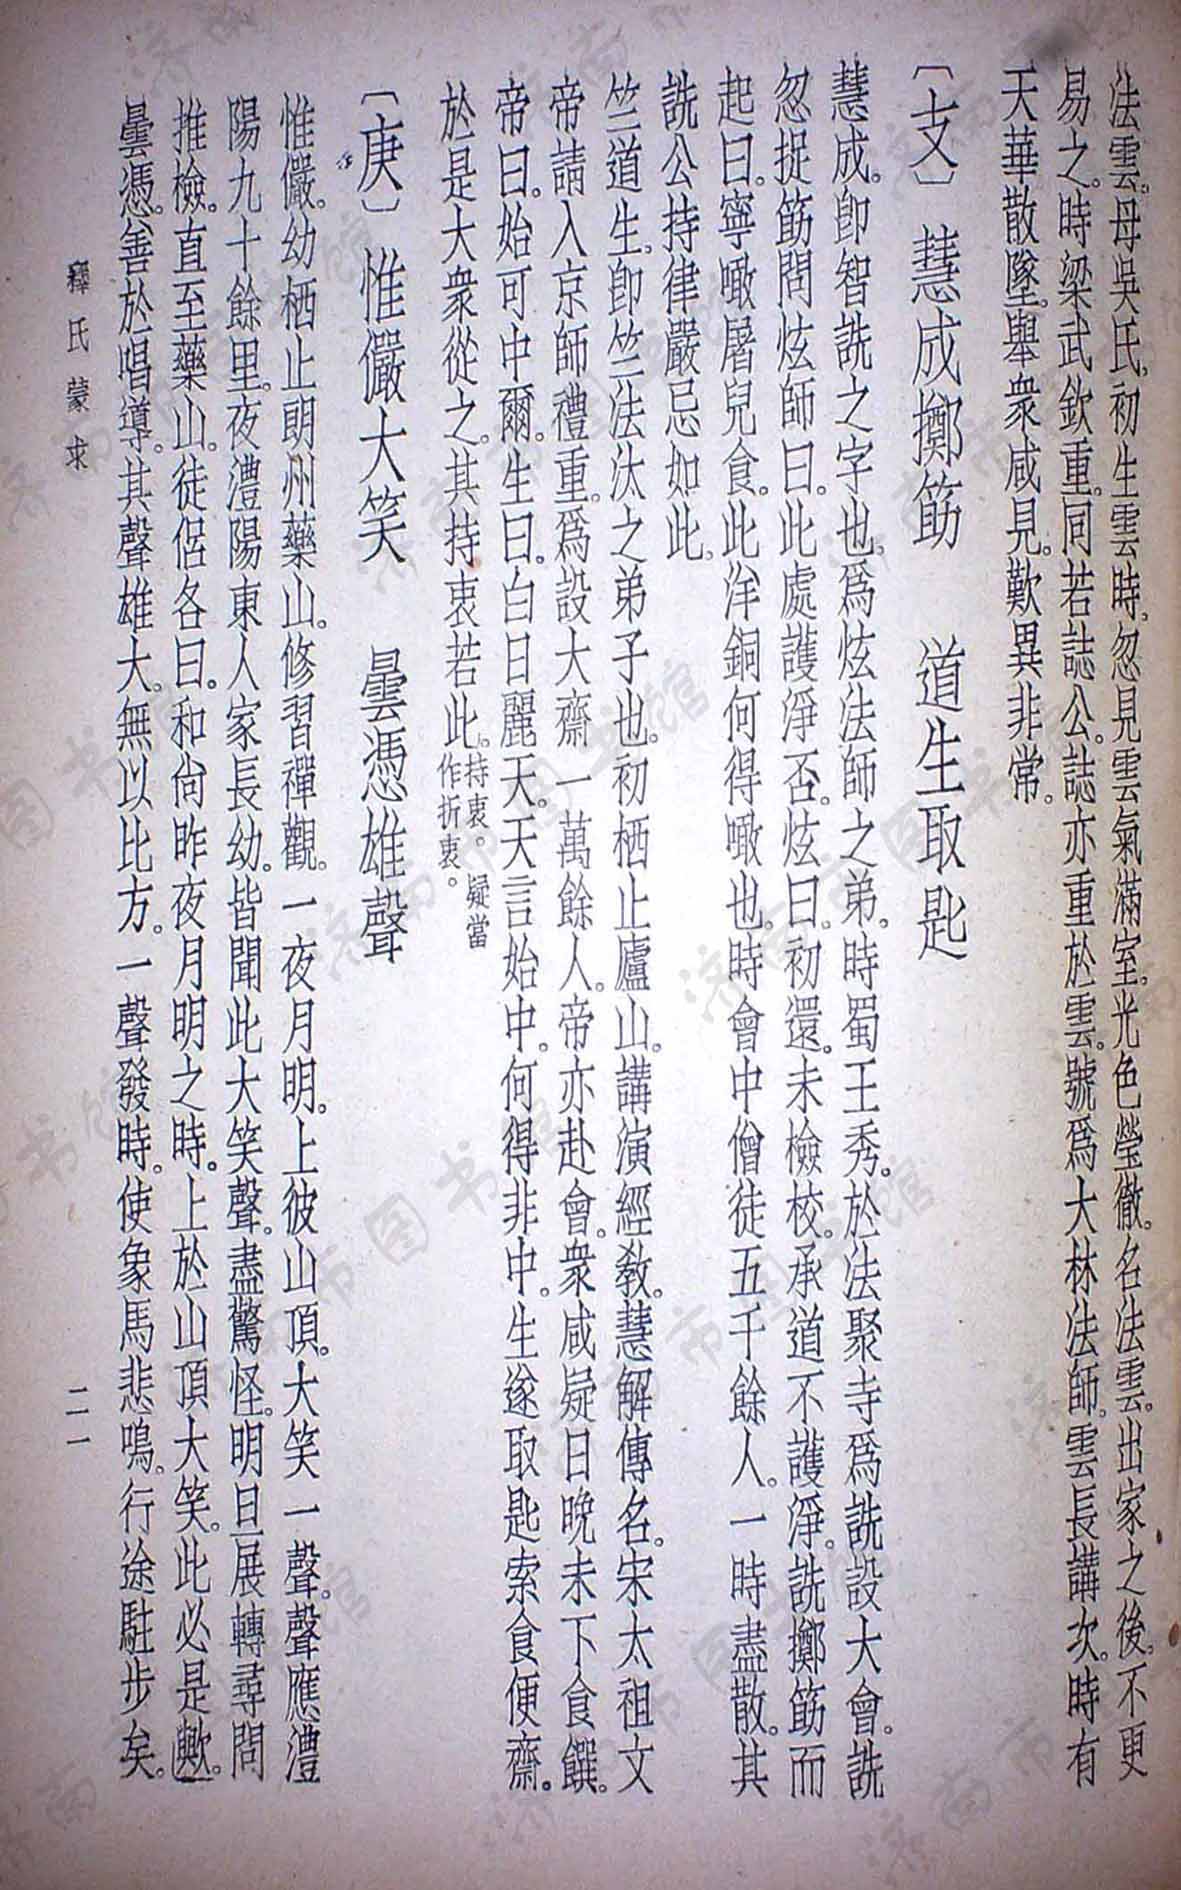 法雲。母吳氏。初生雲時。忽見雲氣滿室。光色瑩徹。名法雲。出家之後。不更
易之。時梁武欽重。同若誌公。誌亦重於雲。號爲大林法師。雲長講次。時有
天華散墜。舉衆咸見。歎異非常。
〔支〕 慧成擲筯 道生取匙
慧成。卽智詵之字也。爲炫法師之弟。時蜀王秀。於法聚寺爲詵設大會。詵
忽捉筯問炫師曰。此處護淨否。炫曰。初還。未檢校。承道不護淨。詵擲筯而
起曰。寧噉屠兒食。此洋銅何得噉也。時會中僧徒五千餘人。一時盡散。其
詵公持律嚴忌如此。
竺道生。卽竺法汰之弟子也。初栖止廬山。講演經敎。慧解傳名。宋太祖文
帝請入京師禮重。爲設大齋一萬餘人。帝亦赴會。衆咸疑日晚未下食饌。
帝曰。始可中爾。生曰。白日麗天。天言始中。何得非中。生遂取匙索食便齋。
於是大衆從之。其持衷若此。持衷。疑當作折衷。
〔庚〕 惟儼大笑 曇憑雄聲
惟儼。幼栖止朗州藥山。修習禪觀。一夜月明。上彼山頂。大笑一聲。聲應澧
陽九十餘里。夜澧陽東人家長幼。皆聞此大笑聲。盡驚怪。明旦展轉尋問
推檢。直至藥山。徒侶各曰。和尙昨夜月明之時。上於山頂大笑。此必是歟。
曇憑。善於唱導。其聲雄大。無以比方。一聲發時。使象馬悲鳴。行途駐步矣。
釋氏蒙求
二一
济南市图书馆